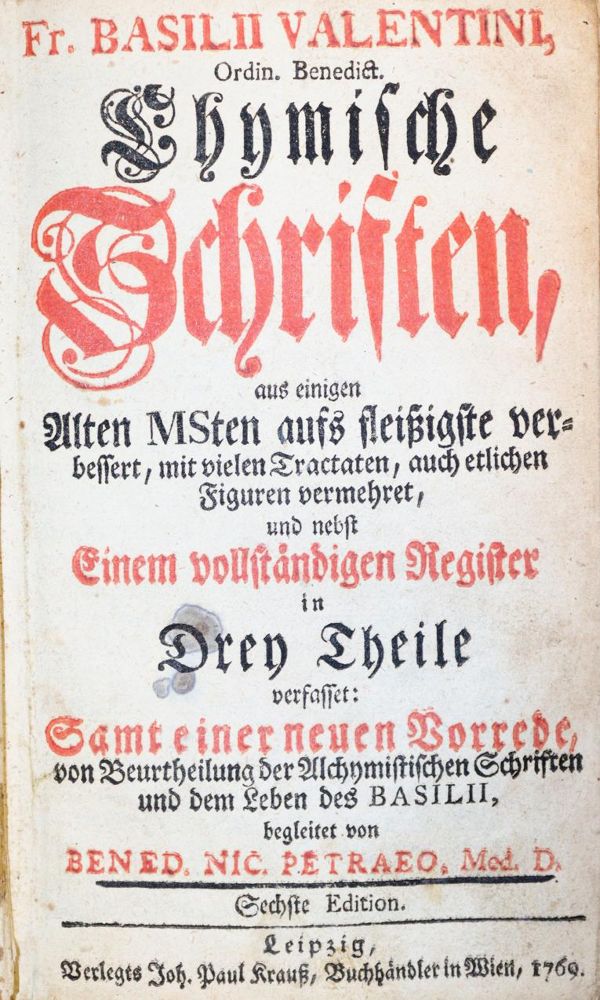 Fr. BASILII VALENTINI,
Ordin. Benedict.
Chymische
Schriften,
aus einigen
Alten MSten aufs fleißigste ver-
bessert, mit vielen Tractaten, auch etlichen
Figuren vermehret,
und nebst
Einem vollständigen Register
in
Drey Theile
verfasset:
Samt einer neuen Vorrede,
von Beurtheilung der Alchymistischen Schriften
und dem Leben des BASILII,
begleitet von
BENED. NIC. PETRAEO, Med. D.
Sechste Edition.
Leipzig,
Verlegts Joh. Paul Krauß, Buchhändler in Wien, 1769.